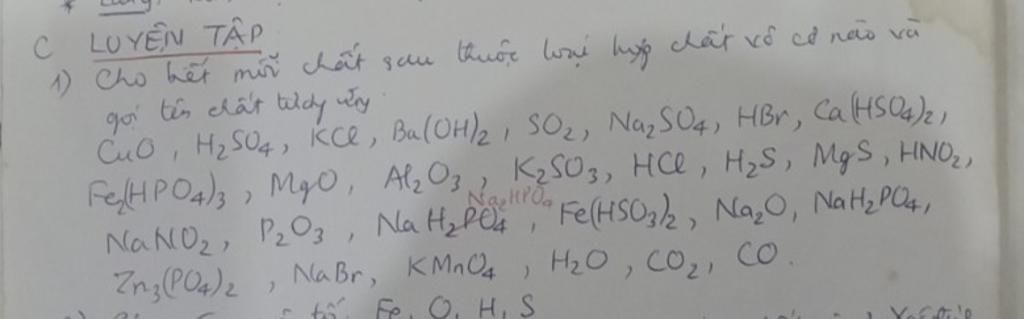 C LUYỆN TẬP
1) Cho biết mỗi chất sau thuộc loại hợp chất vô cơ nào và
gọi tên chất tương ứng.
CuO, H2SO4, KCl, Ba(OH)2, SO2, Na2SO4, HBr, Ca(HSO4)2,
Fe2(HPO4)3, MgO, Al2O3, K2SO3, HCl, H2S, MgS, HNO2,
Na2HPO4
NaNO2, P2O3, NaH2PO4, Fe(HSO3)2, Na2O, NaH2PO4,
Zn3(PO4)2, NaBr, KMnO4, H2O, CO2, CO.
tố Fe, O, H, S